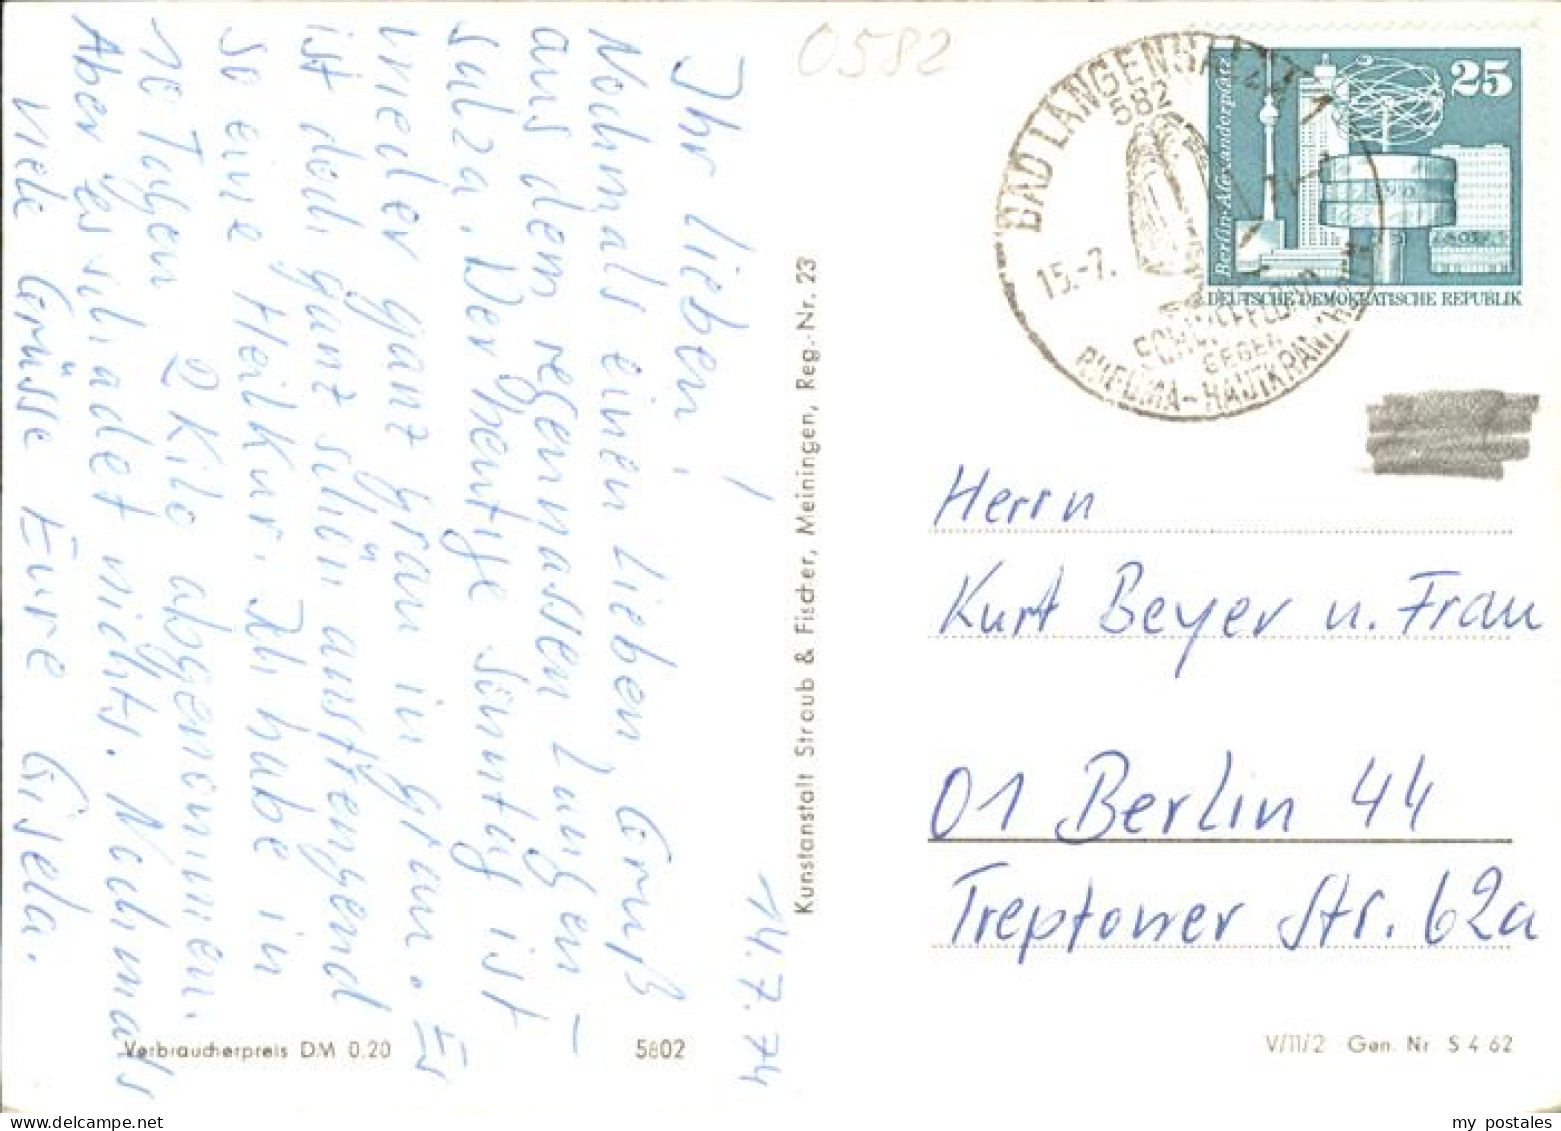 0582
14.7.74
Ihr lieben!
Nochmals einen lieben Gruß
aus dem regennassen Langen-
salza. Der heutige Sonntag ist
wieder ganz grau in grau. Es
ist doch ganz schön anstrengend
so eine Heilkur. Ich habe in
10 Tagen 2 Kilo abgenommen.
Aber es schadet nichts. Nochmals
viele Grüsse Eure Gisela.
Verbraucherpreis DM 0,20
5802
Kunstanstalt Straub & Fischer, Meiningen, Reg.-Nr. 23
BAD LANGENSALZA
582
15.-7.
SCHWEFELBAD
GEGEN
RHEUMA-HAUTKRANKHEITEN
25
Berlin-Alexanderplatz
DEUTSCHE DEMOKRATISCHE REPUBLIK
Herrn
Kurt Beyer u. Frau
01 Berlin 44
Treptower Str. 62a
V/11/2 Gen. Nr S 4 62
my postales